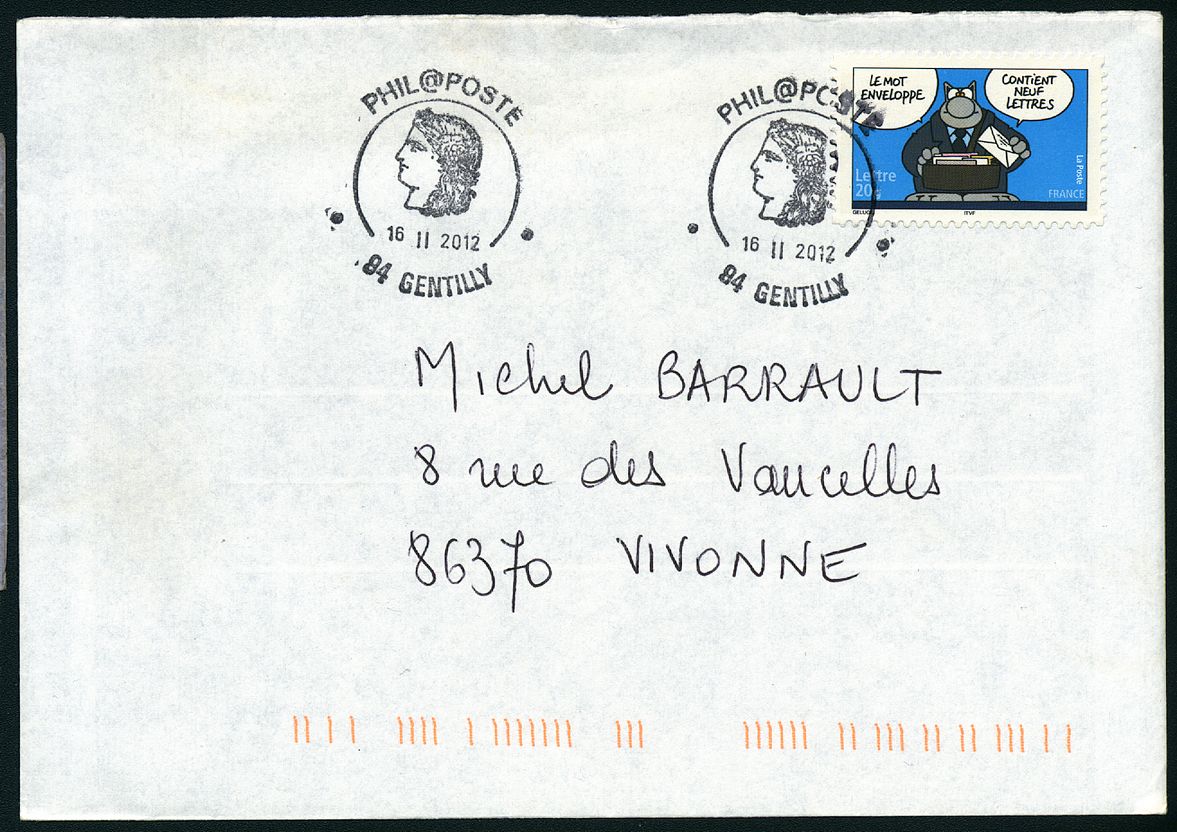 PHIL@POSTE
16 11 2012
94 GENTILLY
PHIL@POSTE
16 11 2012
94 GENTILLY
LE MOT
ENVELOPPE
CONTIENT
NEUF
LETTRES
Lettre
20g
La Poste
FRANCE
GELUCK
ITVF
Michel BARRAULT
8 rue des Vaucelles
86370 VIVONNE